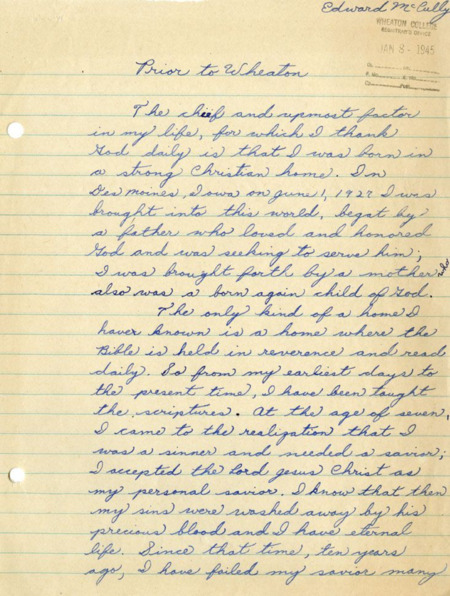 Edward McCully
WHEATON COLLEGE
REGISTRAR'S OFFICE
JAN 8 - 1945
Prior to Wheaton
The chief and upmost factor
in my life, for which I thank
God daily is that I was born in
a strong Christian home. In
Des Moines, Iowa on June 1, 1927 I was
brought into this world, begat by
a father who loved and honored
God and was seeking to serve him;
I was brought forth by a mother who
also was a born again child of God.
The only kind of a home I
haver known is a home where the
Bible is held in reverence and read
daily. So from my earliest days to
the present time, I have been taught
the scriptures. At the age of seven,
I came to the realization that I
was a sinner and needed a savior;
I accepted the Lord Jesus Christ as
my personal savior. I know that then
my sins were washed away by his
precious blood and I have eternal
life. Since that time, ten years
ago, I have failed my savior many